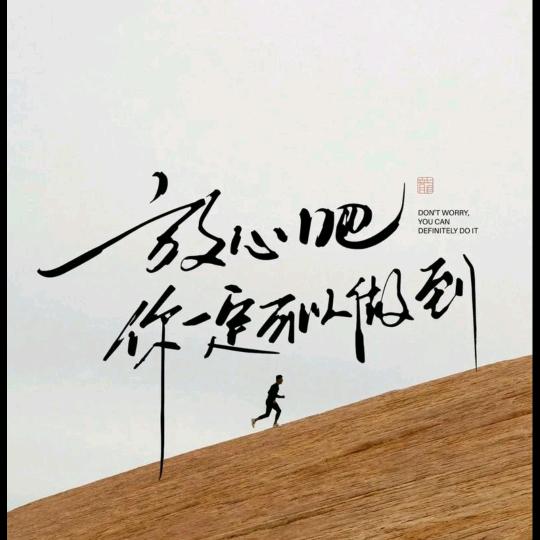 放心吧
你一定可以做到
DON'T WORRY,
YOU CAN
DEFINITELY DO IT